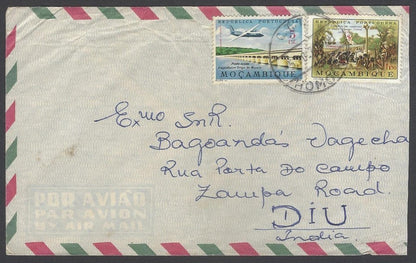 REPÚBLICA PORTUGUESA
MOÇAMBIQUE
REPÚBLICA PORTUGUESA
MOÇAMBIQUE
Exmo Snr.
Bagoandás Vagecha
Rua Porta do Campo
Zampa Road.
DIU
India.
POR AVIÃO
PAR AVION
BY AIR MAIL